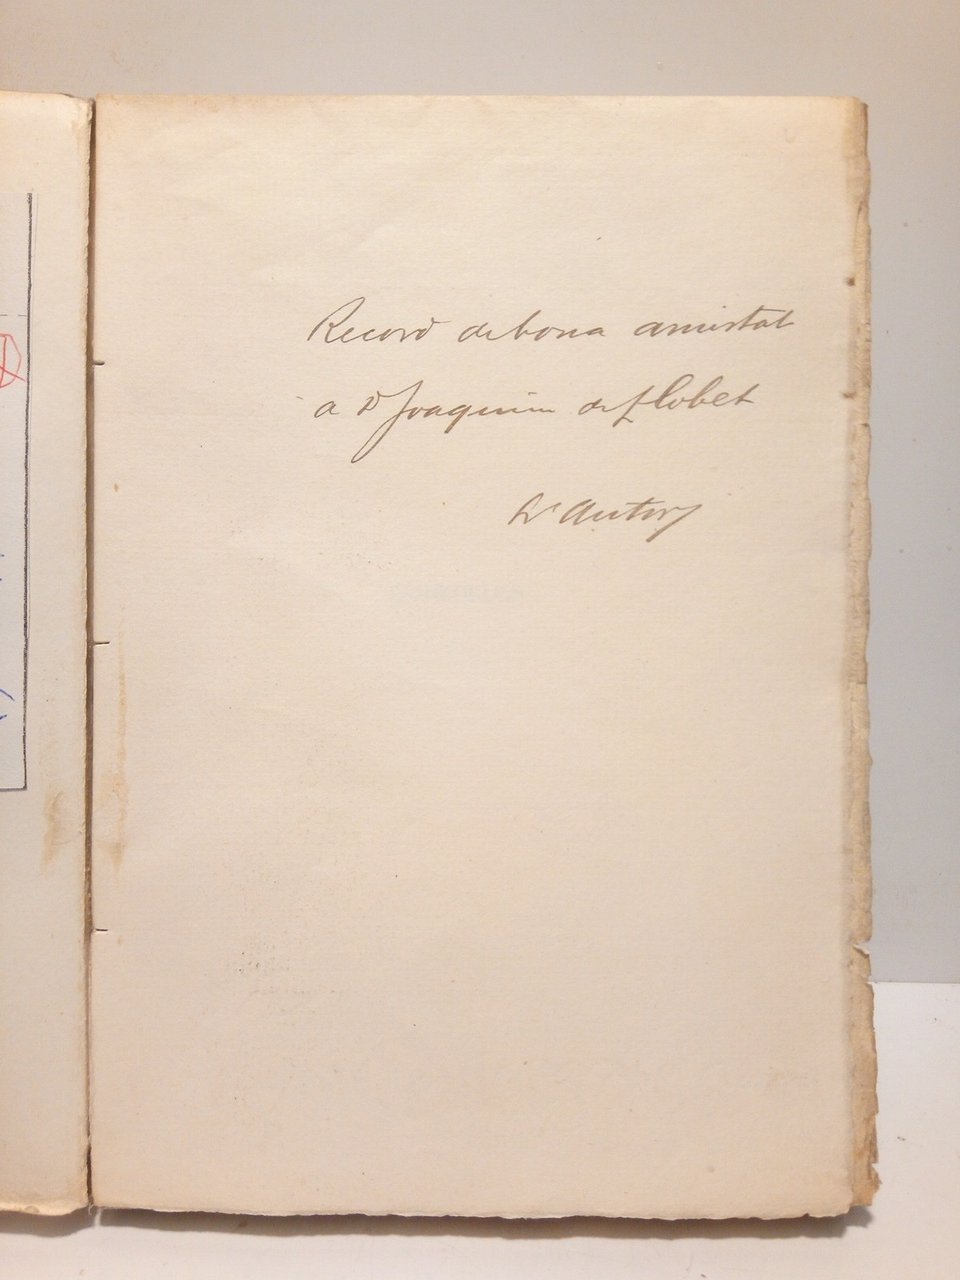 Record de bona amistat
a D Joaquim de Llobet
L'Autor